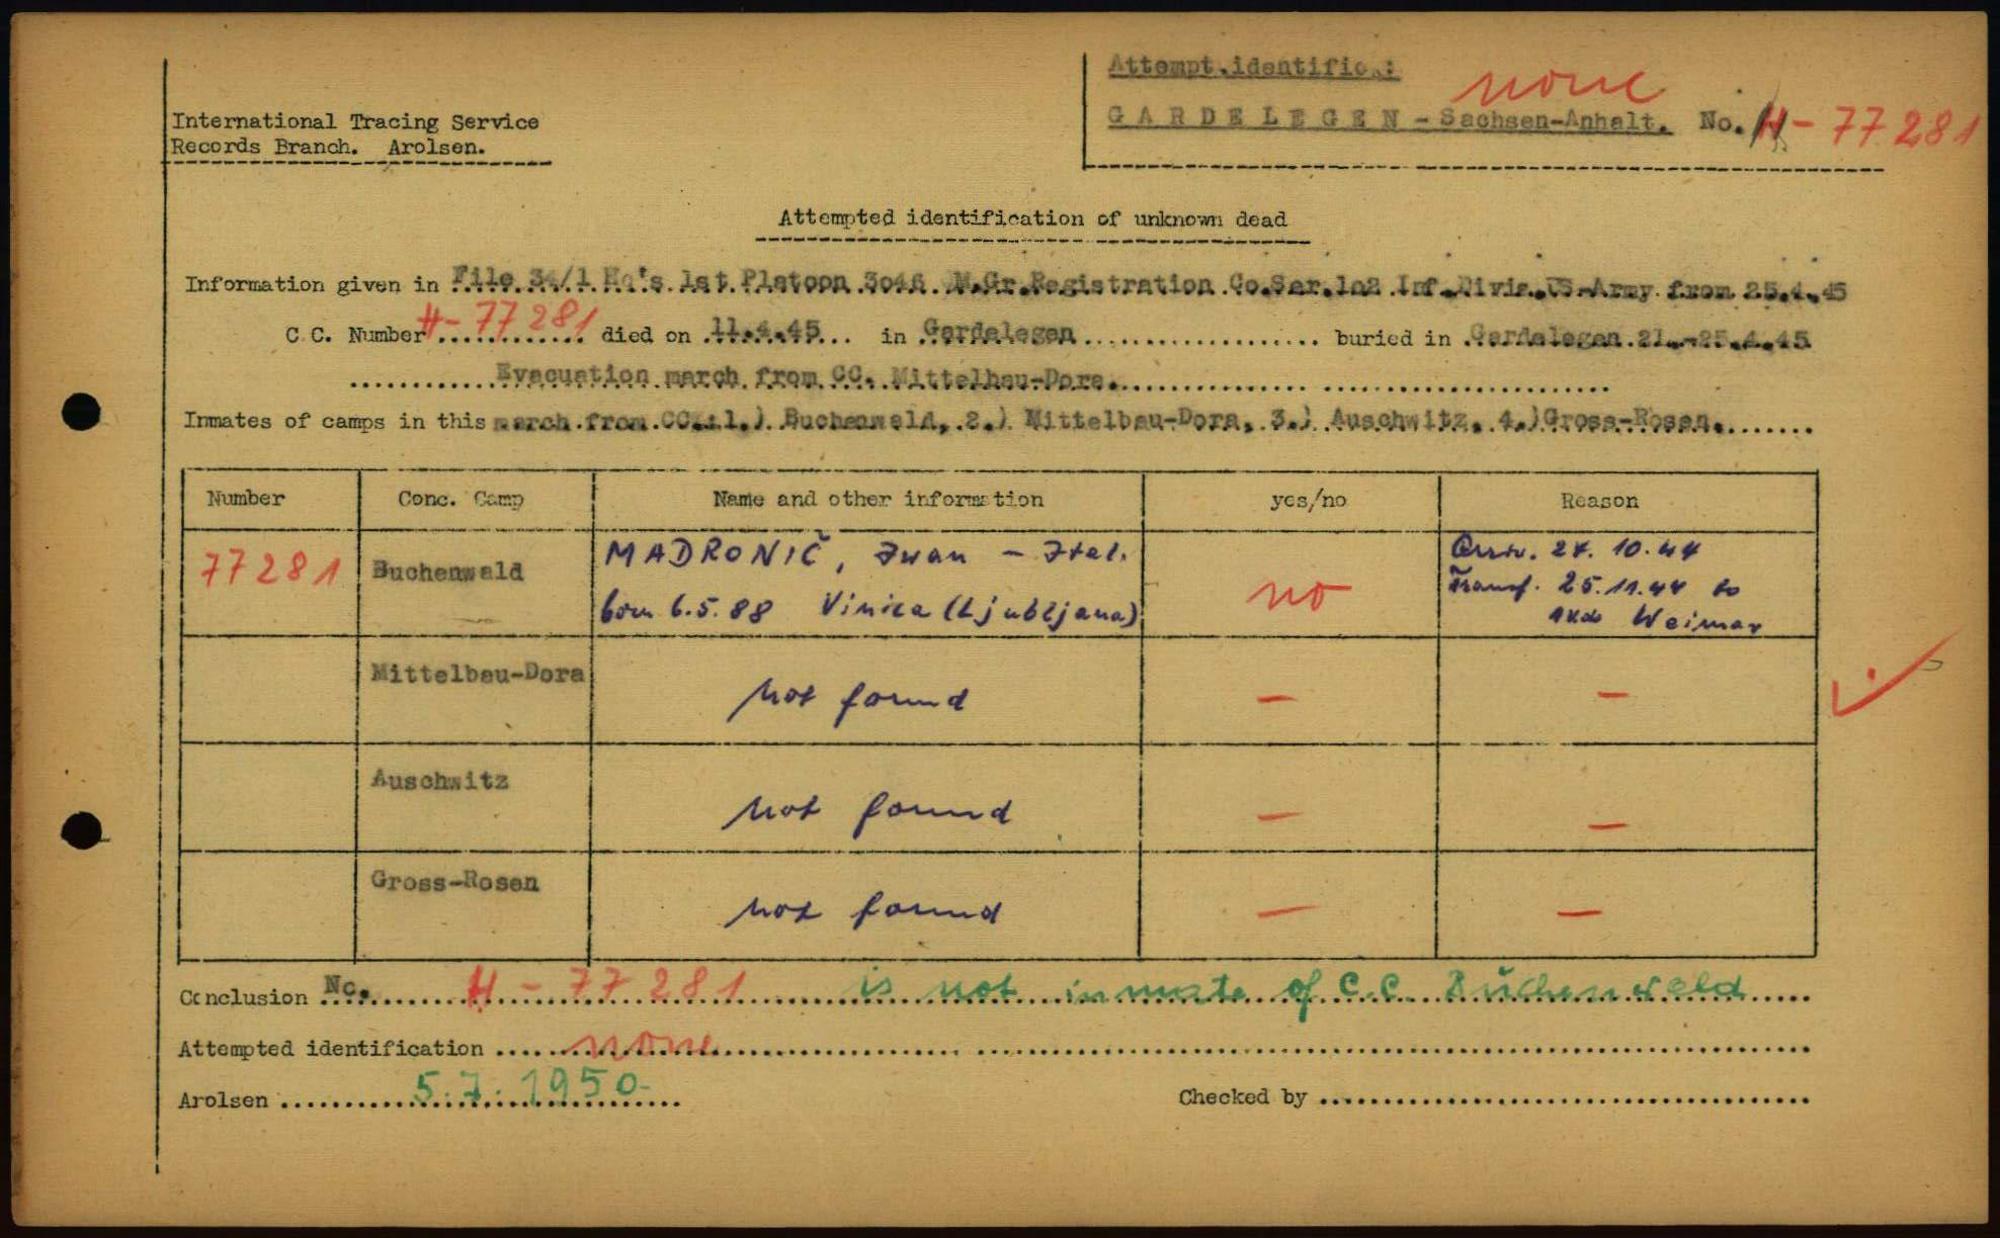 Attempt.identific.:
none
International Tracing Service
Records Branch. Arolsen.
GARDELEGEN - Sachsen-Anhalt. No. H - 77 281
Attempted identification of unknown dead
Information given in File 34/1 Hq's 1st Platoon 3046 M.Gr.Registration Co.Ser.102 Inf.Divis.US-Army from 25.4.45
C.C. Number H- 77 281 died on 11.4.45 in Gardelegen buried in Gardelegen 21.-25.4.45
Evacuation march from CC. Mittelbau-Dora.
Inmates of camps in this march from CC.: 1.) Buchenwald, 2.) Mittelbau-Dora, 3.) Auschwitz, 4.)Gross-Rosen.
Number Conc. Camp Name and other information yes/no Reason
77281 Buchenwald MADRONIČ, Ivan - Ital. no Arriv. 24. 10. 44
born 6.5.88 Vinica (Ljubljana) Transf. 25.11.44 to
Weimar
Mittelbau-Dora not found - -
Auschwitz not found - -
Gross-Rosen not found - -
Conclusion No. H - 77 281 is not inmate of C.C. Buchenwald
Attempted identification none
Arolsen 5.7.1950- Checked by